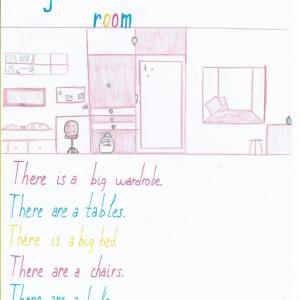 room
There is a big wardrobe.
There are a tables.
There is a big bed.
There are a chairs.
There are a